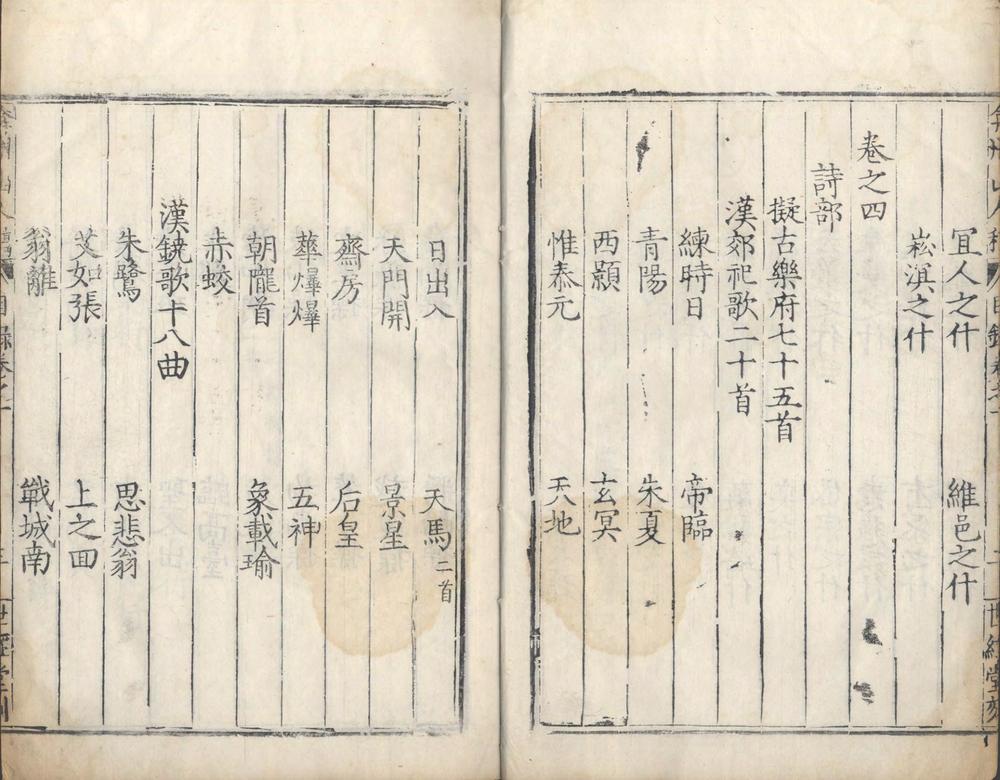 宜人之什　維邑之什
崧淇之什
卷之四
詩部
擬古樂府七十五首
漢郊祀歌二十首
練時日　帝臨
青陽　朱夏
西顥　玄冥
惟泰元　天地
世經堂刻
日出入　天馬二首
天門開　景星
齋房　后皇
華爗爗　五神
朝隴首　象載瑜
赤蛟
漢鐃歌十八曲
朱鷺　思悲翁
艾如張　上之回
翁離　戰城南
世經堂刻